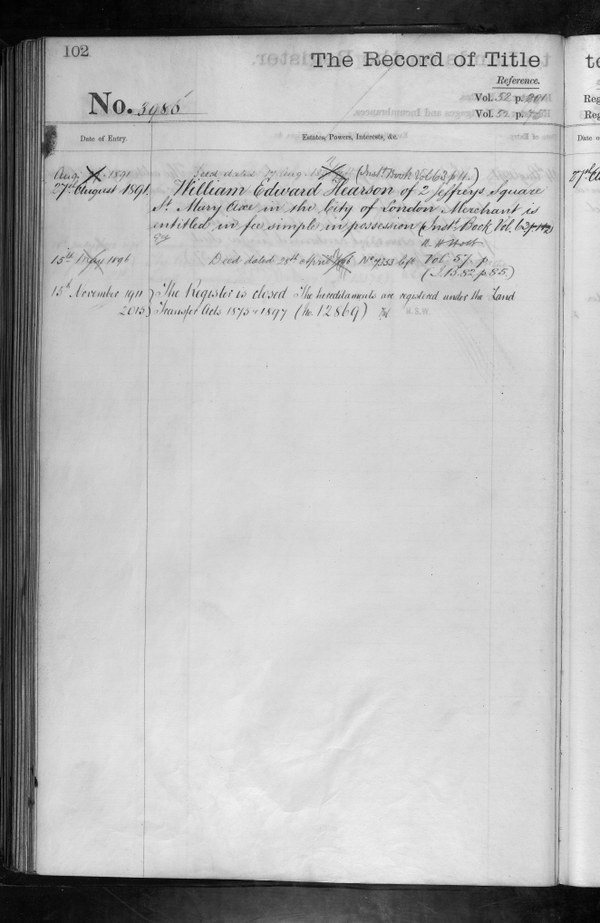 102
The Record of Title
Reference.
No. 3985
Vol. 52 p. 201
Vol. 52 p.
Date of Entry.
Estates, Powers, Interests, &c.
Aug 1891 Deed dated 27 Aug (Inst. Book Vol 62 p 11.)
27th August 1891. William Edward Hearson of 2 Jeffreys Square
St. Mary Axe in the City of London Merchant is
entitled in fee simple in possession (Inst. Book Vol. 62 p 142)
15th May 1896 Deed dated 29th April No 7353 left Vol. 57. p
(I.B. 52 p. 55)
15th November 1911 The Register is closed The hereditaments are registered under the Land
2015 Transfer Acts 1875 & 1897 (No. 12869)
te
Reg
Reg
Date o
27th Au